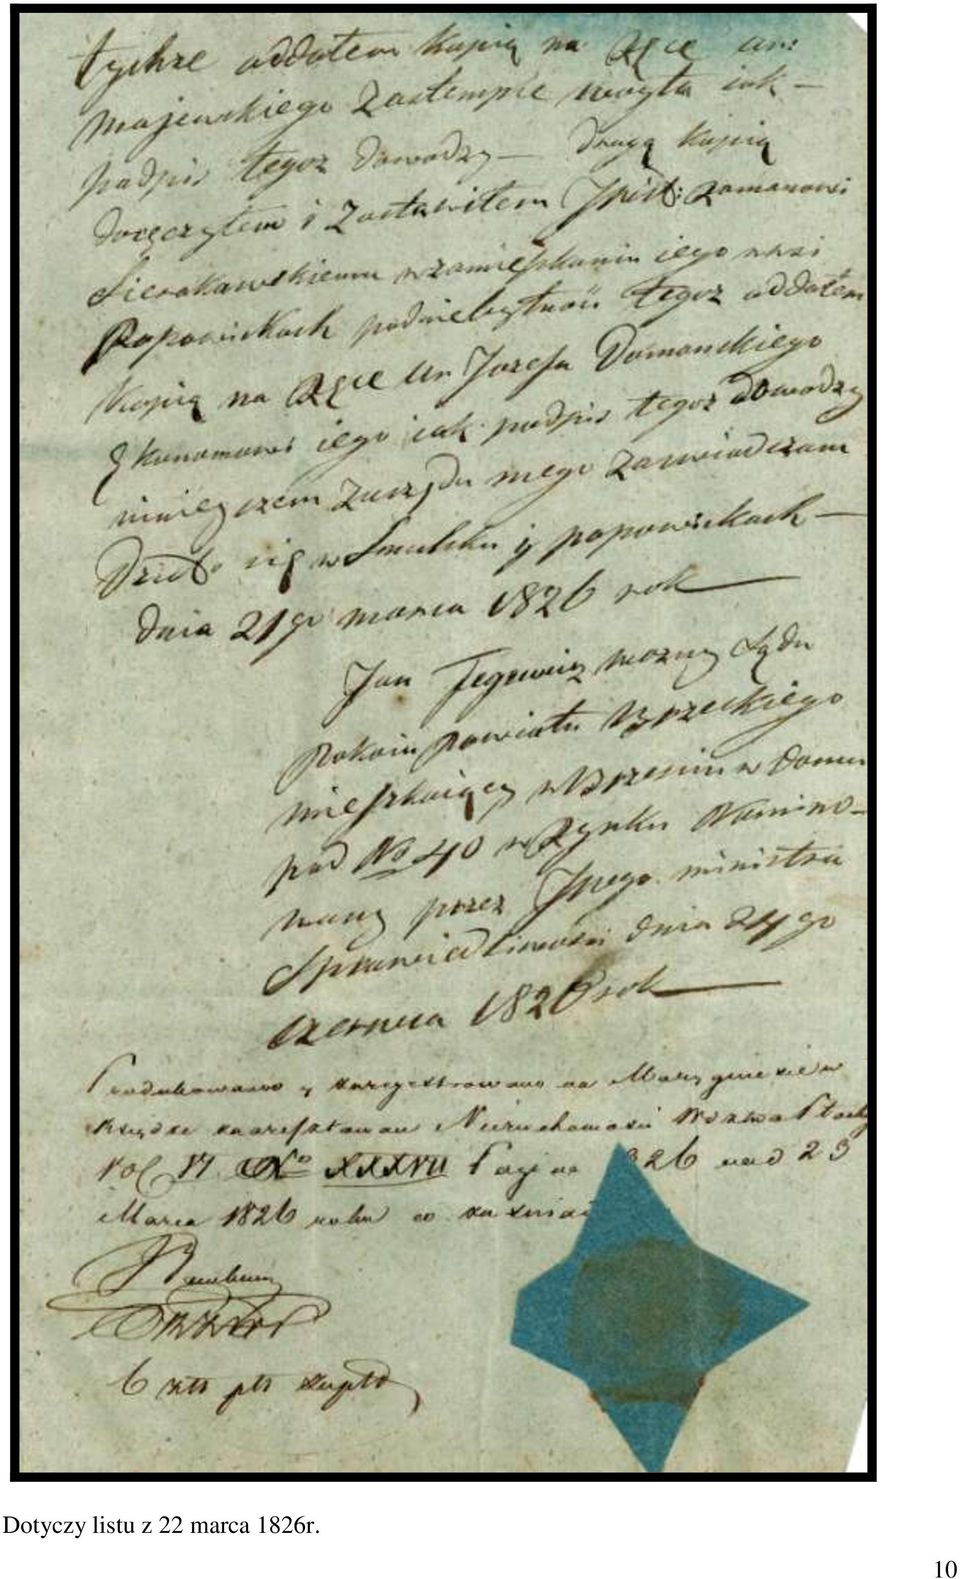 tychże oddałem kopią na ręce ur:
Majewskiego Zastempce woyta iak —
podpis tegoż dowodzy — drugą kopią
doręczyłem i zostawiłem Romanowi
Sierakowskiemu w zamieszkaniu iego wsi
Popowickach podniebytność tegoż oddałem
kopią na ręce Ur Jozefa Domanskiego
Ekonomowi iego iak podpis tegoż dowodzy
ninieyszem zurzędu mego zaswiadczam
Działo się w Smulsku y popowickach —
dnia 21go marca 1826 rok
Jan Tegowicz wozny Sądu
Pokoiu powiatu Brzeskiego
mieszkaiący w Brzesciu w domu
pod No 40 w Rynku Nomino-
wany przez Jgo ministra
Sprawiedliwosci dnia 24go
czerwca 1826 rok
Produkowano y zaregestrowano na Marginesie w
Księdze zaaresztowan Nieruchomosci Wdztwa Płock
Vol 17 No XXXVII Pagina 326 nad 23
Marca 1826 roku co zaswiad
6 złt płt
Dotyczy listu z 22 marca 1826r.
10